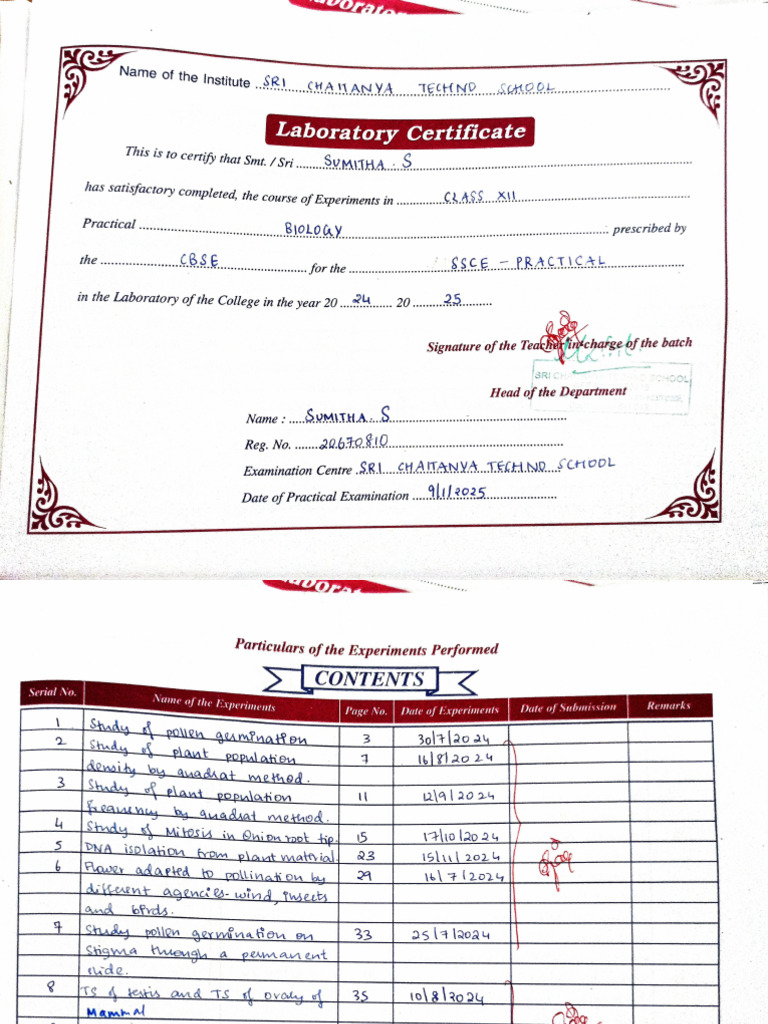 Name of the Institute SRI CHAITANYA TECHNO SCHOOL
Laboratory Certificate
This is to certify that Smt. / Sri SUMITHA . S
has satisfactory completed, the course of Experiments in CLASS XII
Practical BIOLOGY prescribed by
the CBSE for the SSCE - PRACTICAL
in the Laboratory of the College in the year 20 24 20 25
Signature of the Teacher in-charge of the batch
SRI CH SCHOOL
Head of the Department
Name : SUMITHA . S
Reg. No. 20670810
Examination Centre SRI CHAITANYA TECHNO SCHOOL
Date of Practical Examination 9/1/2025
Particulars of the Experiments Performed
CONTENTS
Serial No. Name of the Experiments Page No. Date of Experiments Date of Submission Remarks
1 Study of pollen germination 3 30/7/2024
2 Study of plant population 7 16/8/2024
density by quadrat method.
3 Study of plant population 11 12/9/2024
frequency by quadrat method.
4 Study of Mitosis in Onion root tip. 15 17/10/2024
5 DNA isolation from plant material. 23 15/11/2024
6 Flower adapted to pollination by 29 16/7/2024
different agencies- wind, insects
and birds.
7 Study pollen germination on 33 25/7/2024
stigma through a permanent
slide.
8 TS of testis and TS of ovary of 35 10/8/2024
Mammal